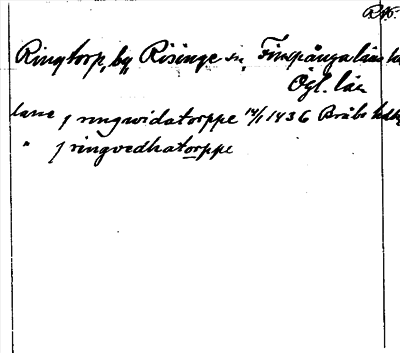 RAp.
Ringtorp, by, Risinge sn, Finspånga läns hd
Ögl. län
lane j ringwidatorppe 14/1 1436 Bråbo hdsk
" j ringvedhatorppe